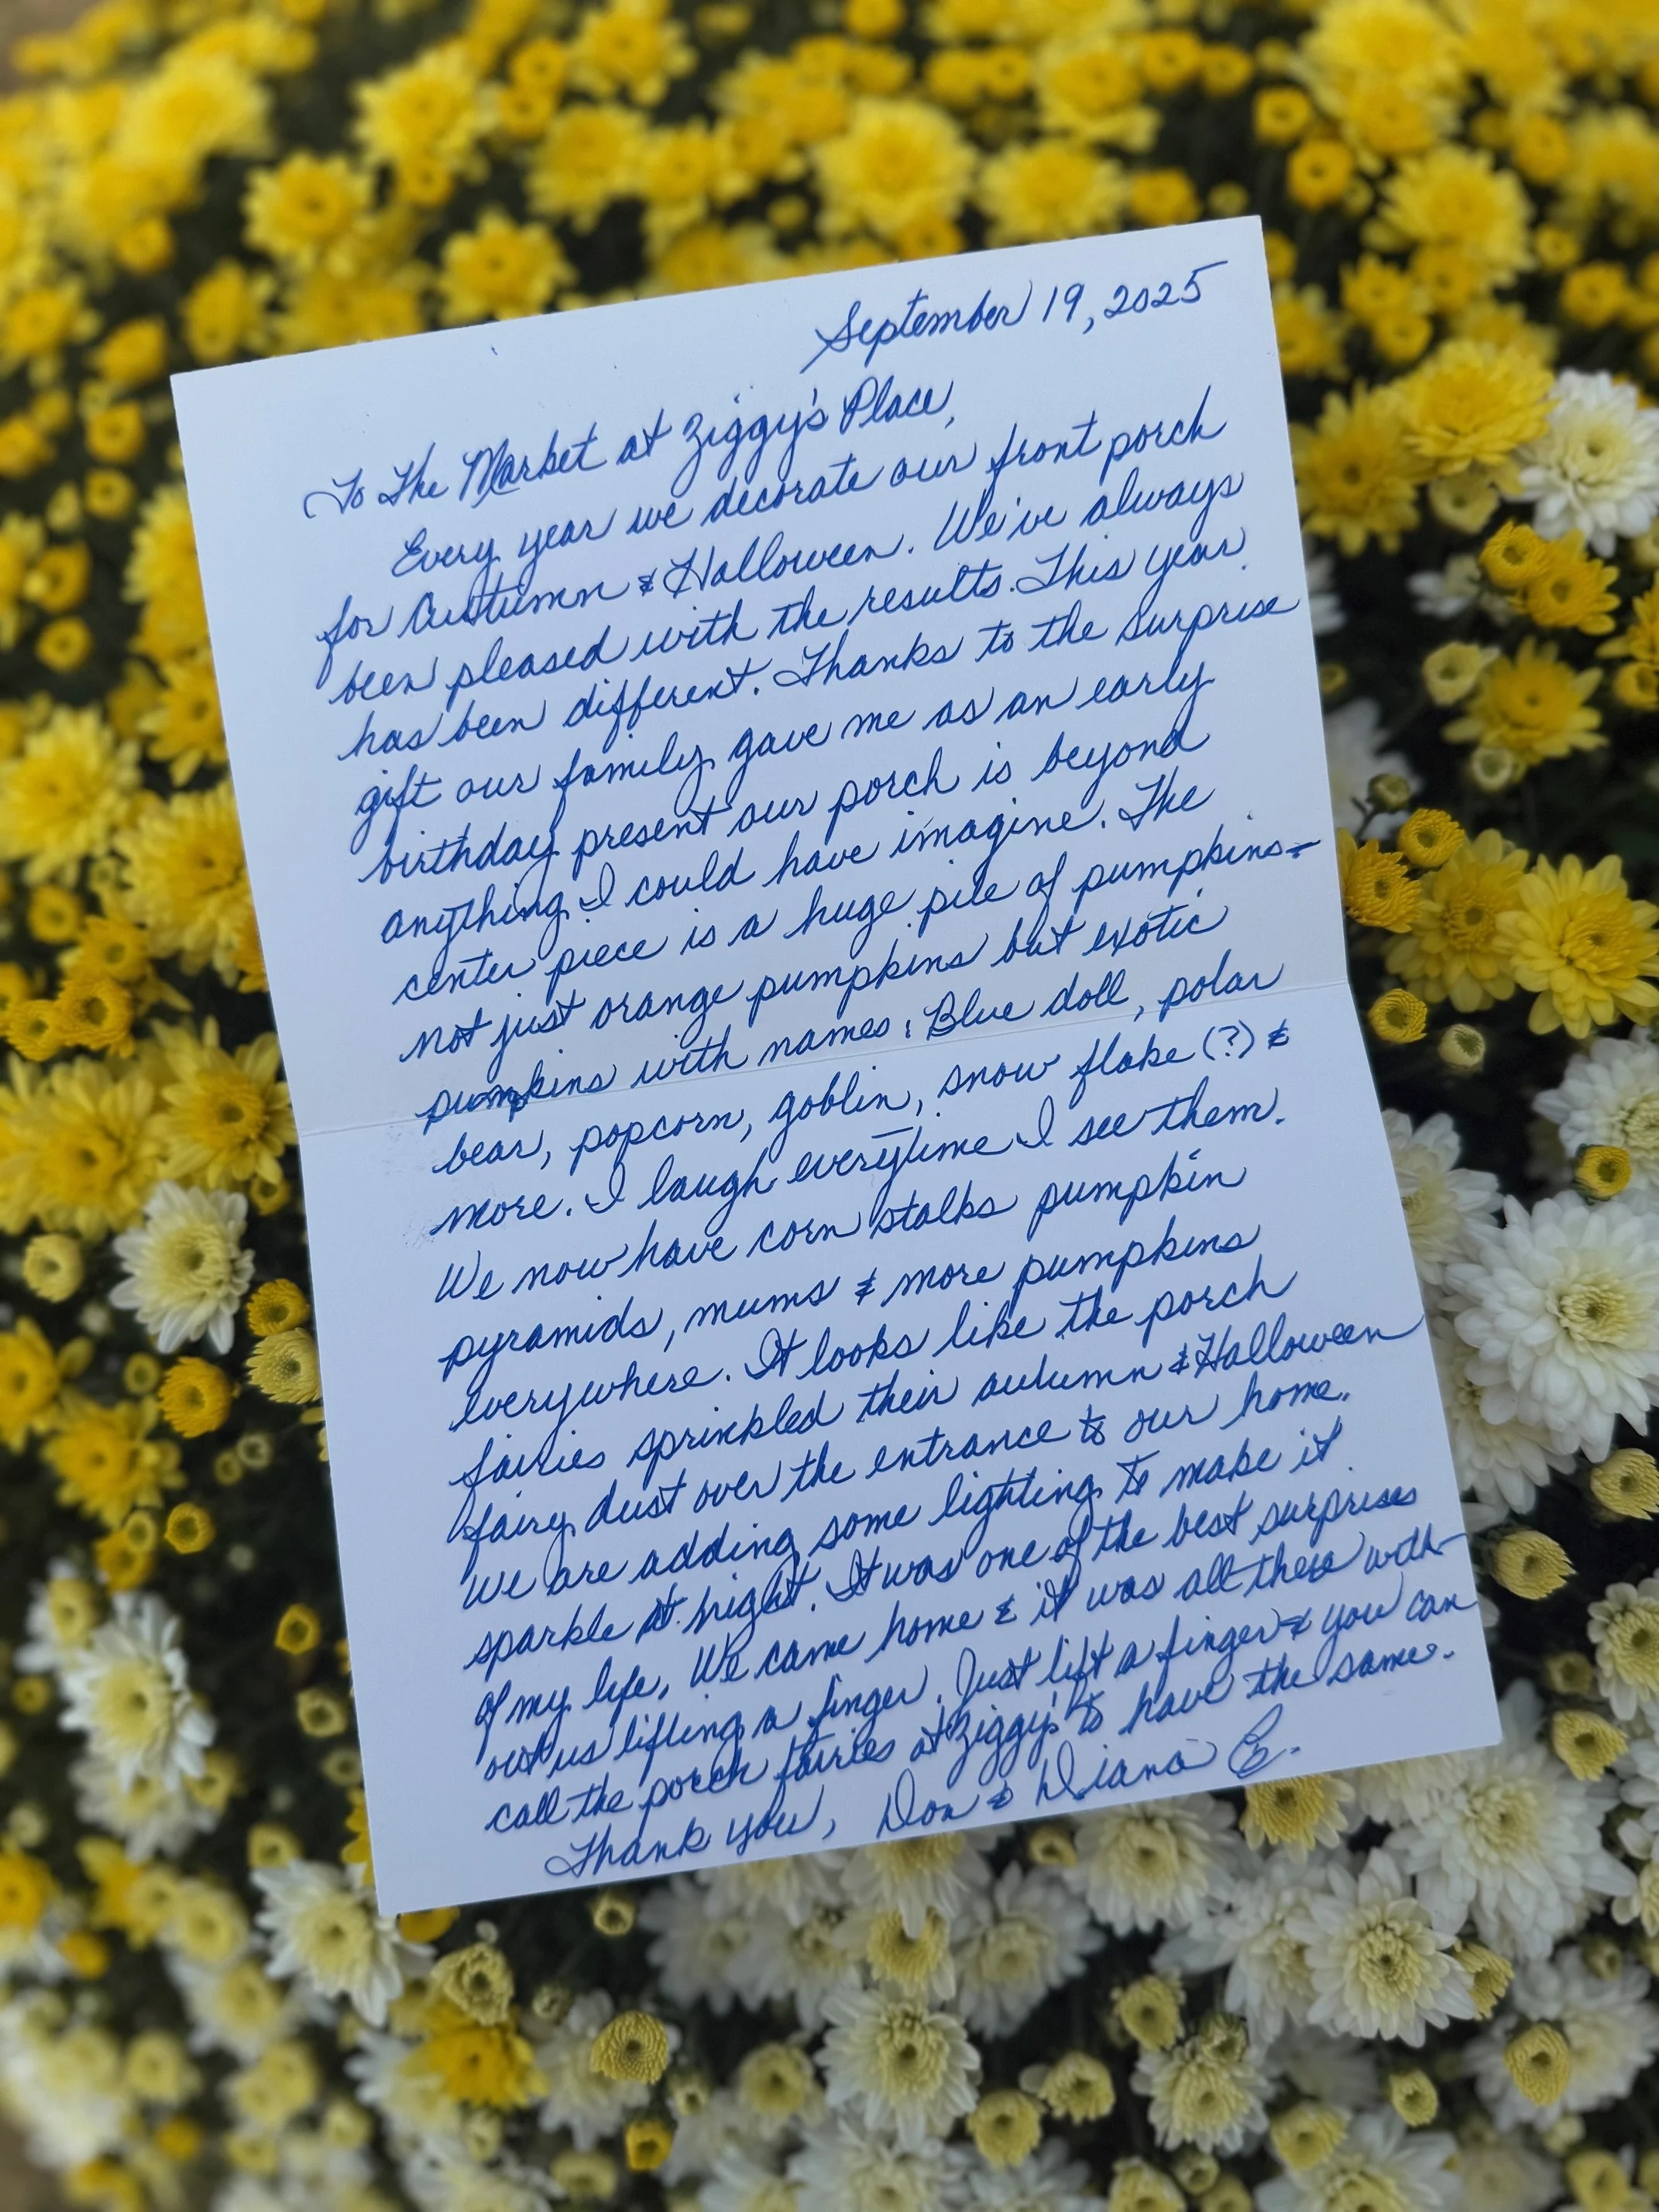 September 19, 2025
To The Market at Ziggy's Place,
Every year we decorate our front porch
for Autumn & Halloween. We've always
been pleased with the results. This year
has been different. Thanks to the surprise
gift our family gave me as an early
birthday present our porch is beyond
anything I could have imagine. The
center piece is a huge pile of pumpkins-
not just orange pumpkins but exotic
pumpkins with names: Blue doll, polar
bear, popcorn, goblin, snow flake (?) &
more. I laugh everytime I see them.
We now have corn stalks pumpkin
pyramids, mums & more pumpkins
everywhere. It looks like the porch
fairies sprinkled their autumn & Halloween
fairy dust over the entrance to our home.
We are adding some lighting to make it
sparkle at night. It was one of the best surprises
of my life. We came home & it was all there with-
out us lifting a finger. Just lift a finger & you can
call the porch fairies at Ziggy's to have the same.
Thank you, Don & Diana E.